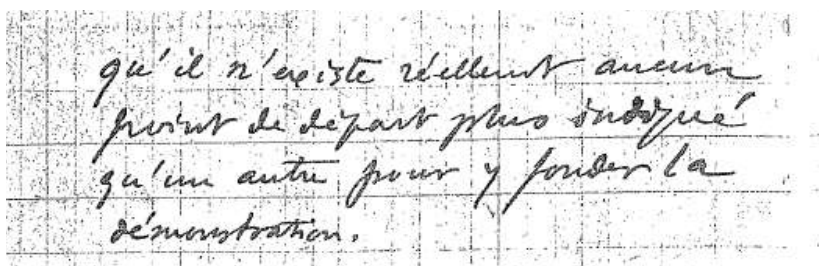 qu'il n'existe réellement aucun
point de départ plus indiqué
qu'un autre pour y fonder la
démonstration.